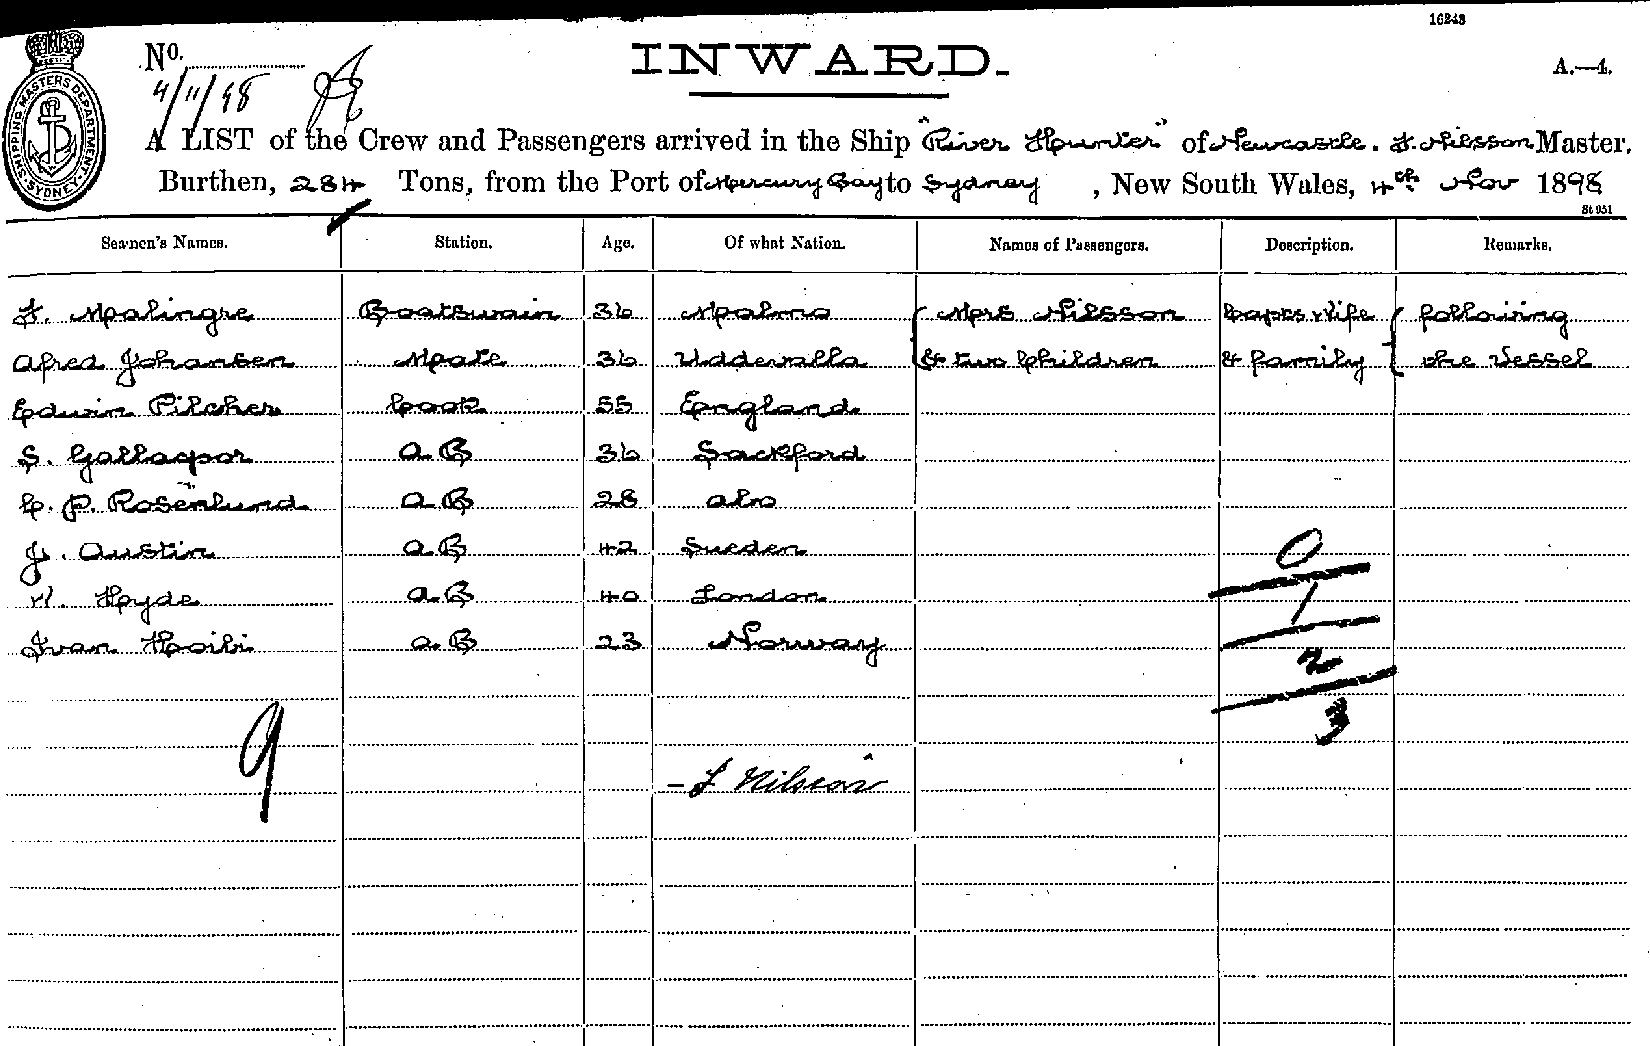 16248
INWARD.
No.
A.—1.
4/11/98
SHIPPING MASTERS DEPARTMENT. SYDNEY.
A LIST of the Crew and Passengers arrived in the Ship "River Hunter" of Newcastle. F. Nilsson Master,
Burthen, 284 Tons, from the Port of Mercury Bay to Sydney, New South Wales, 4th Nov 1898
St 951
Seamen's Names. Station. Age. Of what Nation. Names of Passengers. Description. Remarks.
F. Malingre Boatswain 36 Malmo Mrs Nilsson Capts Wife following
Alfred Johansen Mate 36 Uddevalla & two Children & family the Vessel
Edwin Pilcher Cook 55 England
S. A.B 36 Sackford
C. P. Rosenlund A.B 28 Abo
J. Austin A.B 42 Sueden
W. Hyde A.B 40 London
Ivan Hoibi A.B 23 Norway
0
1
2
3
9
Nilsson